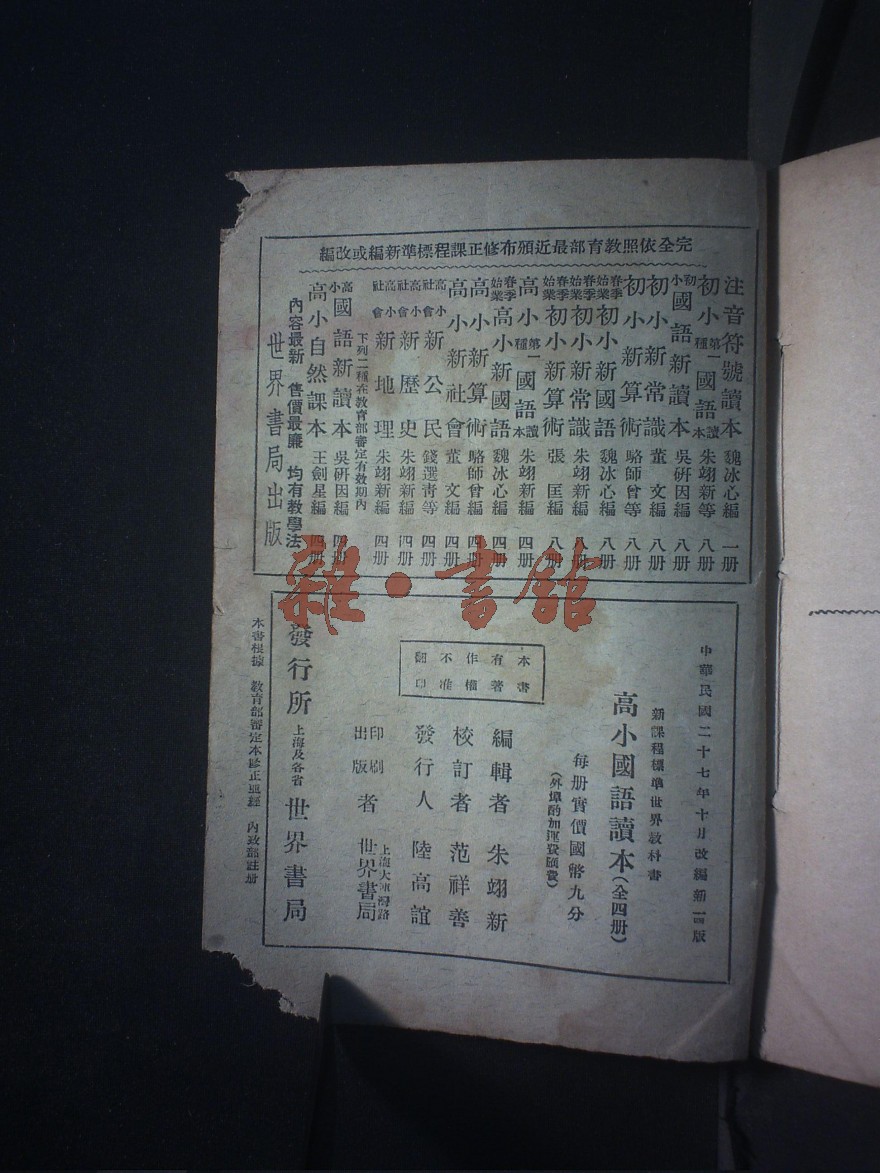 完全依照教育部最近頒布修正課程標準新編或改編
注音符號讀本 魏冰心編 一册
初小第一種國語讀本 朱翊新等 八册
初小國語新讀本 吳研因編 八册
初小新常識 董文編 八册
初小新算術 駱師曾等 八册
春季始業初小新國語 魏冰心編 八册
春季始業初小新常識 朱翊新編 八册
春季始業初小新算術 張匡編 八册
高小第一種國語讀本 朱翊新編 四册
春季始業高小新國語 魏冰心編 四册
高小新算術 駱師曾編 四册
高小新社會 董文編 四册
高小社會新公民 錢選青等 四册
高小社會新歷史 朱翊新編 四册
高小社會新地理 朱翊新編 四册
下列二種在教育部審定有效期內
高小國語新讀本 吳研因編 四册
高小自然課本 王劍星編 四册
內容最新 售價最廉 均有教學法
世界書局出版
雜·書館
中華民國二十七年十月改編新一四版
新課程標準世界教科書
高小國語讀本(全四册)
每册實價國幣九分
(外埠酌加運費匯費)
本書有著作權不准翻印
編輯者 朱翊新
校訂者 范祥善
發行人 陸高誼
印刷出版者 上海大連灣路世界書局
發行所 上海及各省世界書局
本書根據 教育部審定本 內政部註册